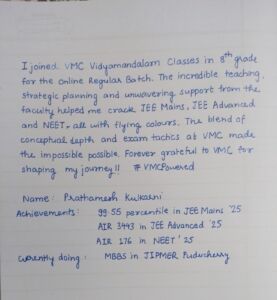 I joined VMC Vidyamandalam Classes in 8th grade
for the Online Regular Batch. The incredible teaching,
strategic planning and unwavering support from the
faculty helped me crack JEE Mains, JEE Advanced
and NEET, all with flying colours. The blend of
conceptual depth and exam tactics at VMC made
the impossible possible. Forever grateful to VMC for
shaping my journey!! #VMCPowered
Name: Prathamesh Kulkarni
Achievements: 99.55 percentile in JEE Mains '25
AIR 3443 in JEE Advanced '25
AIR 176 in NEET '25
Currently doing: MBBS in JIPMER Puducherry